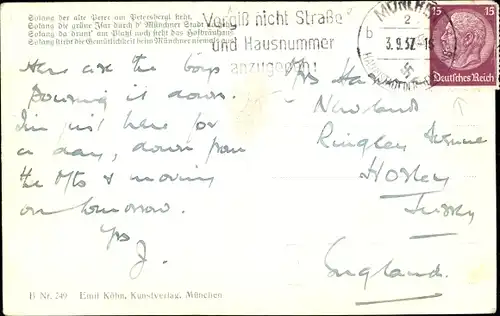 Solang der alte Peter am Petersbergl steht,
Solang die grüne Isar durch d' Münchner Stadt
Solang da drunt' am Platzl noch steht das Hofbräuhaus
Solang stirbt die Gemütlichkeit beim Münchner niemals
Vergiß nicht Straße
und Hausnummer
anzugeben!
MÜNCHEN
2
b
3.9.37.-16
15 15
Deutsches Reich
Here are the boys
Downing it down.
I'm just here for
a day, down from
the Mts & moving
on tomorrow.
Yrs
J.
Newland
Ringley Avenue
Horley
Surrey
England.
B Nr. 249 Emil Köhn, Kunstverlag, München